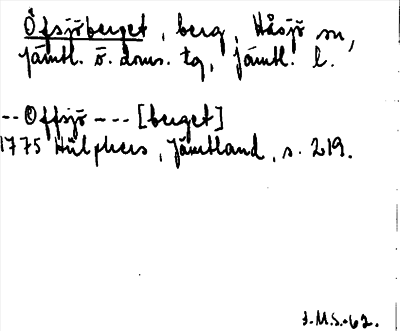 Öfsjöberget, berg, Håsjö sn,
jämtl. ö. doms. tg, jämtl. l.
-- Offsjö --- [berget]
1775 Hülphers, Jämtland, s. 219.
J.M.S.-62.